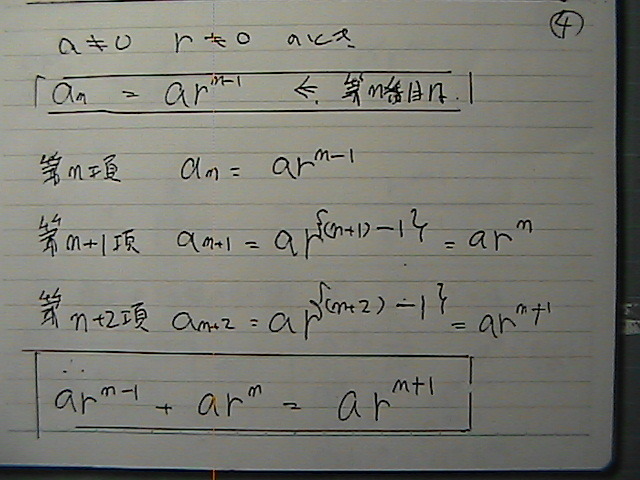 ④
a≠0 r≠0 のとき
「aₙ = arⁿ⁻¹ ← 第n番目は.」
第n項 aₙ = arⁿ⁻¹
第n+1項 aₙ₊₁ = ar^{(n+1)-1} = arⁿ
第n+2項 aₙ₊₂ = ar^{(n+2)-1} = arⁿ⁺¹
∴ arⁿ⁻¹ + arⁿ = arⁿ⁺¹